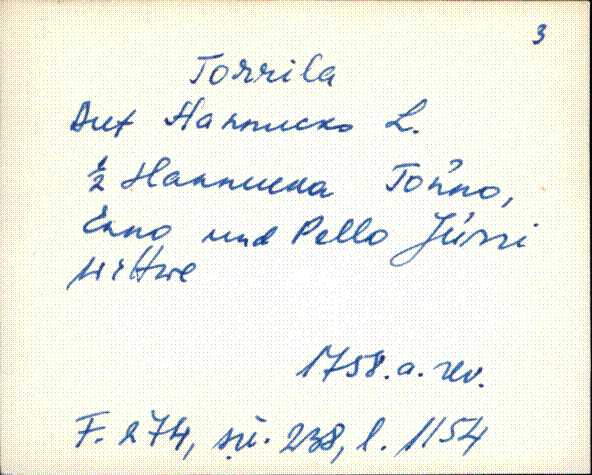 3
Torrila
Auf Hannucko L.
½ Hannucka Tönno,
Enno und Pello Jürri
Wittwe
1758.a. rev.
F. 274, sü. 238, l. 1154